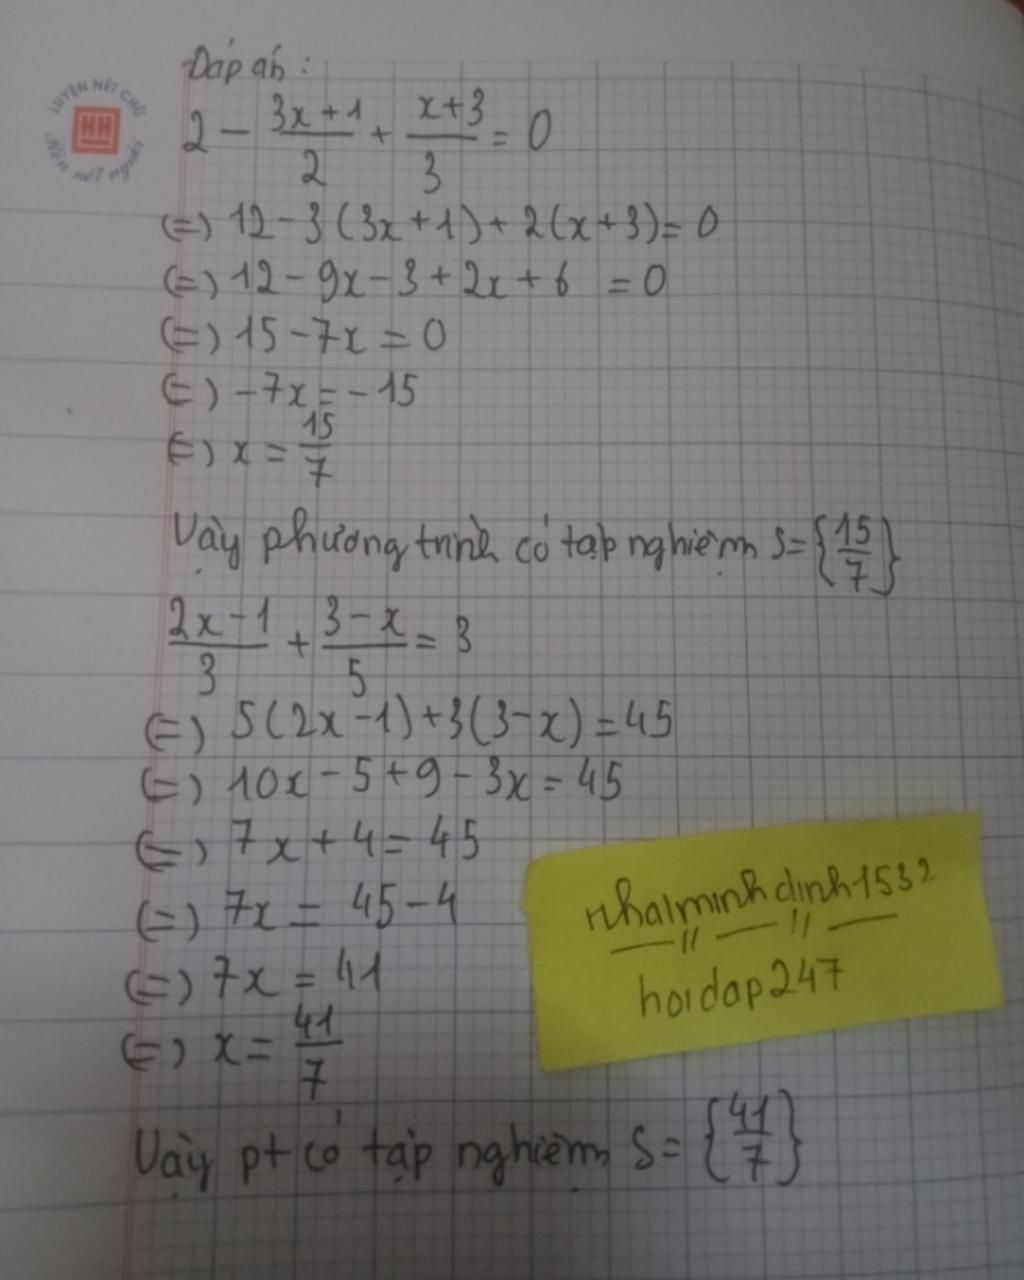 Đáp án:
LUYỆN NÉT CHỮ
HH
Rèn nết người
2 - \frac{3x+1}{2} + \frac{x+3}{3} = 0
(=) 12 - 3(3x+1) + 2(x+3) = 0
(=) 12 - 9x - 3 + 2x + 6 = 0
(=) 15 - 7x = 0
(=) -7x = -15
(=) x = \frac{15}{7}
Vậy phương trình có tập nghiệm S = {\frac{15}{7}}
\frac{2x-1}{3} + \frac{3-x}{5} = 3
(=) 5(2x-1) + 3(3-x) = 45
(=) 10x - 5 + 9 - 3x = 45
(=) 7x + 4 = 45
(=) 7x = 45 - 4
(=) 7x = 41
(=) x = \frac{41}{7}
nhaiminhdinh1532
hoidap247
Vậy pt có tập nghiệm S = {\frac{41}{7}}